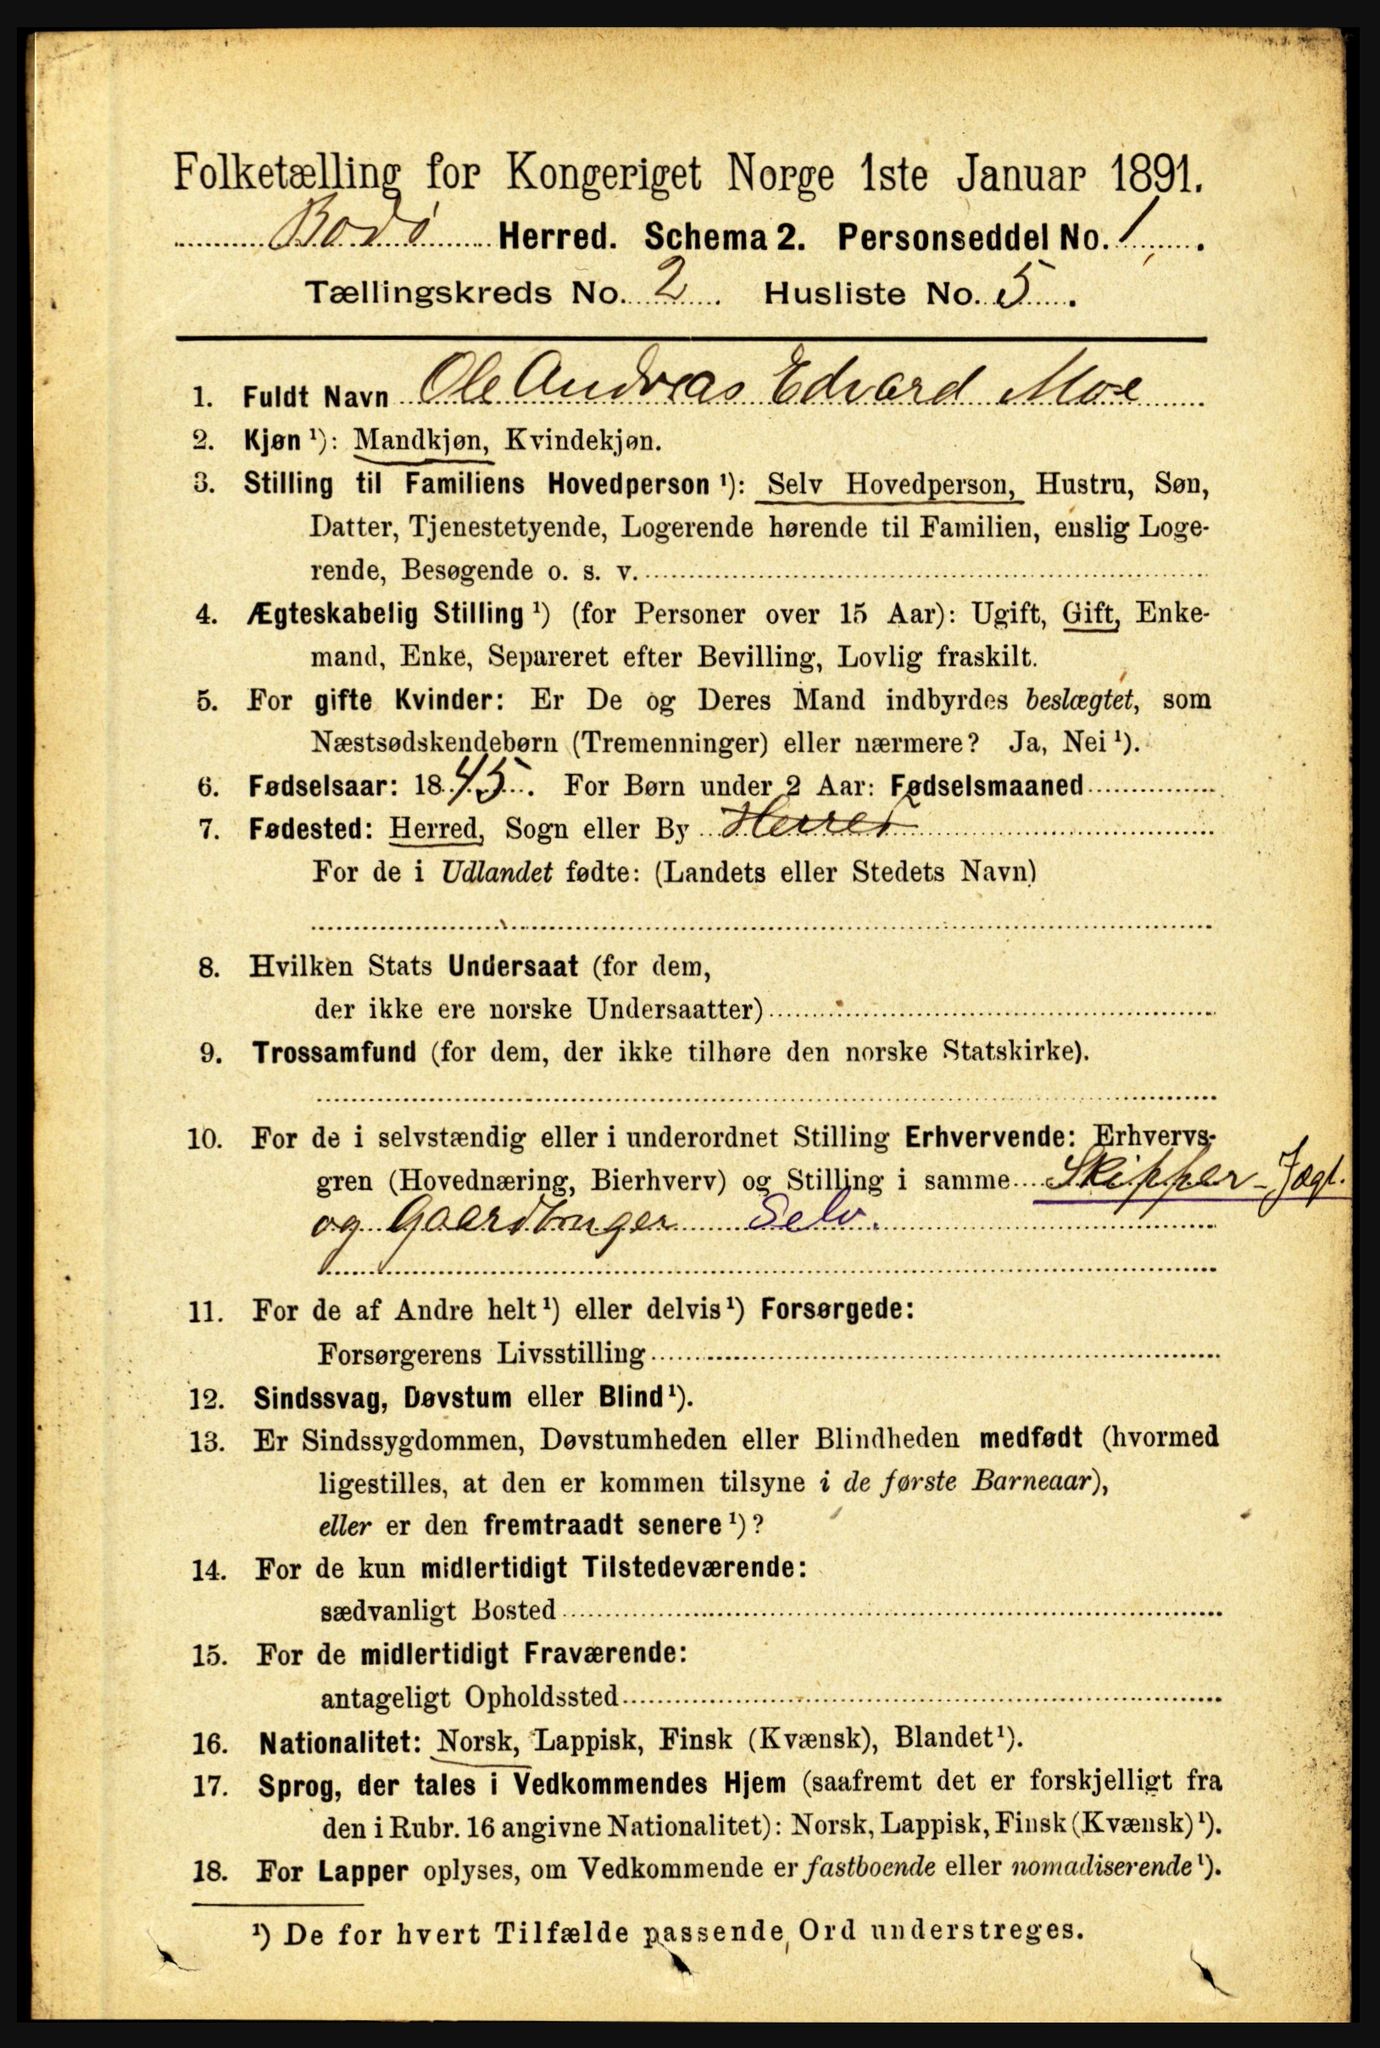 Folketælling for Kongeriget Norge 1ste Januar 1891.
Bodø Herred. Schema 2. Personseddel No. 1.
Tællingskreds No. 2. Husliste No. 5.
1. Fuldt Navn Ole Andreas Edvard Moe
2. Kjøn ¹): Mandkjøn, Kvindekjøn.
3. Stilling til Familiens Hovedperson ¹): Selv Hovedperson, Hustru, Søn,
Datter, Tjenestetyende, Logerende hørende til Familien, enslig Loge-
rende, Besøgende o. s. v.
4. Ægteskabelig Stilling ¹) (for Personer over 15 Aar): Ugift, Gift, Enke-
mand, Enke, Separeret efter Bevilling, Lovlig fraskilt.
5. For gifte Kvinder: Er De og Deres Mand indbyrdes beslægtet, som
Næstsødskendebørn (Tremenninger) eller nærmere? Ja, Nei ¹).
6. Fødselsaar: 1845. For Børn under 2 Aar: Fødselsmaaned
7. Fødested: Herred, Sogn eller By Herred
For de i Udlandet fødte: (Landets eller Stedets Navn)
8. Hvilken Stats Undersaat (for dem,
der ikke ere norske Undersaatter)
9. Trossamfund (for dem, der ikke tilhøre den norske Statskirke).
10. For de i selvstændig eller i underordnet Stilling Erhvervende: Erhvervs-
gren (Hovednæring, Bierhverv) og Stilling i samme Skipper - Jægt.
og Gaardbruger Selv.
11. For de af Andre helt ¹) eller delvis ¹) Forsørgede:
Forsørgerens Livsstilling
12. Sindssvag, Døvstum eller Blind ¹).
13. Er Sindssygdommen, Døvstumheden eller Blindheden medfødt (hvormed
ligestilles, at den er kommen tilsyne i de første Barneaar),
eller er den fremtraadt senere ¹)?
14. For de kun midlertidigt Tilstedeværende:
sædvanligt Bosted
15. For de midlertidigt Fraværende:
antageligt Opholdssted
16. Nationalitet: Norsk, Lappisk, Finsk (Kvænsk), Blandet ¹).
17. Sprog, der tales i Vedkommendes Hjem (saafremt det er forskjelligt fra
den i Rubr. 16 angivne Nationalitet): Norsk, Lappisk, Finsk (Kvænsk) ¹).
18. For Lapper oplyses, om Vedkommende er fastboende eller nomadiserende ¹).
¹) De for hvert Tilfælde passende Ord understreges.